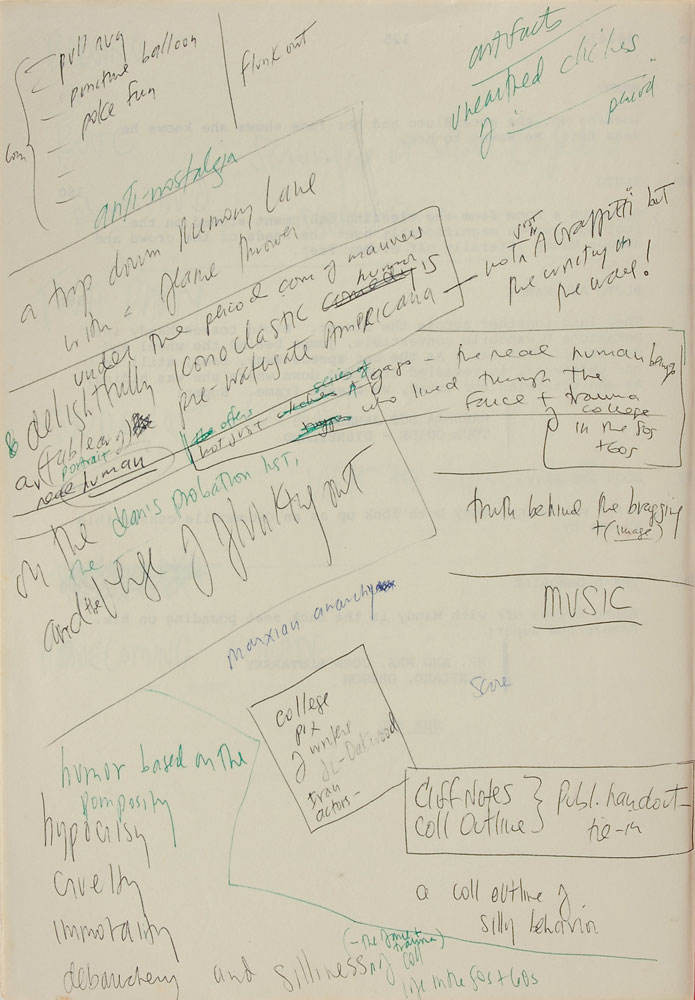 pull rug
puncture balloon
poke fun
flunk out
artifacts
unearthed cliches
of period
anti-nostalgia
a trip down Memory Lane
with a flame thrower
under the period com of manners
delightfully iconoclastic comedy humor is
pre-watergate Americana — not "A Graffiti" but
the writing on
the wall!
a (tableau)
portrait of
real human
the offers
not just a series of gags — the real human beings
who lived through the
farce + trauma
college
in the 50s
+ 60s
on the
the dean's probation list,
and the verge of flunking out
truth behind the bragging
+ (image)
MUSIC
marxian anarchy
score
college
pix
of writers
JL - Oakwood
Ivan
actors -
humor based on the
pomposity
hypocrisy
cruelty
immorality
debauchery and silliness of coll
(- the farce + trauma)
life in the 50s + 60s
Cliff Notes
Coll Outline } Publ. handout
tie-in
a coll outline of
silly behavior